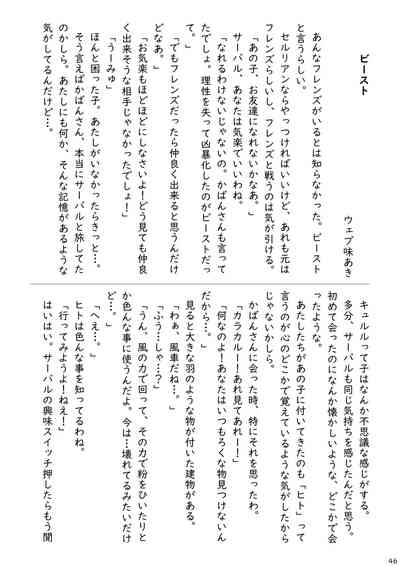 ビースト
ウェブ味あき
あんなフレンズがいるとは知らなかった。ビースト
と言うらしい。
セルリアンならやっつければいいけど、あれも元は
フレンズらしいし、フレンズと戦うのは気が引ける。
「あの子、お友達になれないかなあ。」
サーバル、あなたは気楽でいいわね。
「なれるわけないじゃないの。かばんさんも言って
たでしょ。理性を失って凶暴化したのがビーストだっ
て。」
「でもフレンズだったら仲良く出来ると思うんだけ
どなあ。」
「お気楽もほどほどにしなさいよ！どう見ても仲良
く出来そうな相手じゃなかったでしょ！」
「うーみゅ」
ほんと困った子。あたしがいなかったらきっと…。
そう言えばかばんさん、本当にサーバルと旅してた
のかしら。あたしにも何か、そんな記憶があるような
気がしてるんだけど…。
キュルルって子はなんか不思議な感じがする。
多分、サーバルも同じ気持ちを感じたんだと思う。
初めて会ったのになんか懐かしいような、どこかで会
ったような。
あたしたちがあの子に付いてきたのも「ヒト」って
言うのが心のどこかで覚えているような気がしたから
じゃないかしら。
かばんさんに会った時、特にそれを思ったわ。
「カラカルー！あれ見てあれー！」
「何なのよ！あなたはいつもろくな物見つけないん
だから…。」
見ると大きな羽のような物が付いた建物がある。
「わぁ、風車だね…。」
「ふう…しゃ…？」
「うん、風の力で回って、その力で粉をひいたりと
か色んな事に使うんだよ。今は…壊れてるみたいだけ
ど…。」
「へえ…。」
ヒトは色んな事を知ってるわね。
「行ってみようよ！ねえ！」
はいはい。サーバルの興味スイッチ押したらもう聞
46